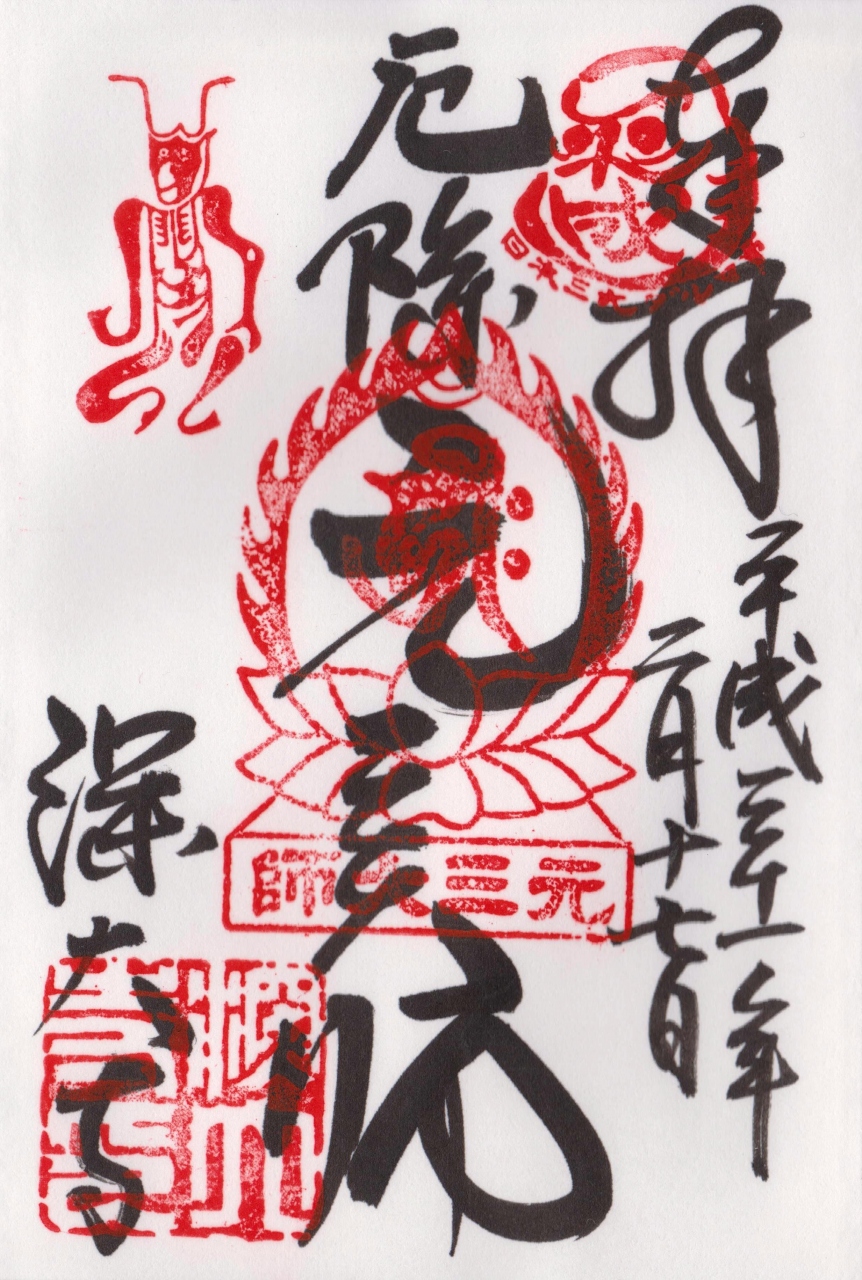 奉拝
平成三十一年
二月十七日
厄除
元三大師
元三大師
深大寺
日本三大